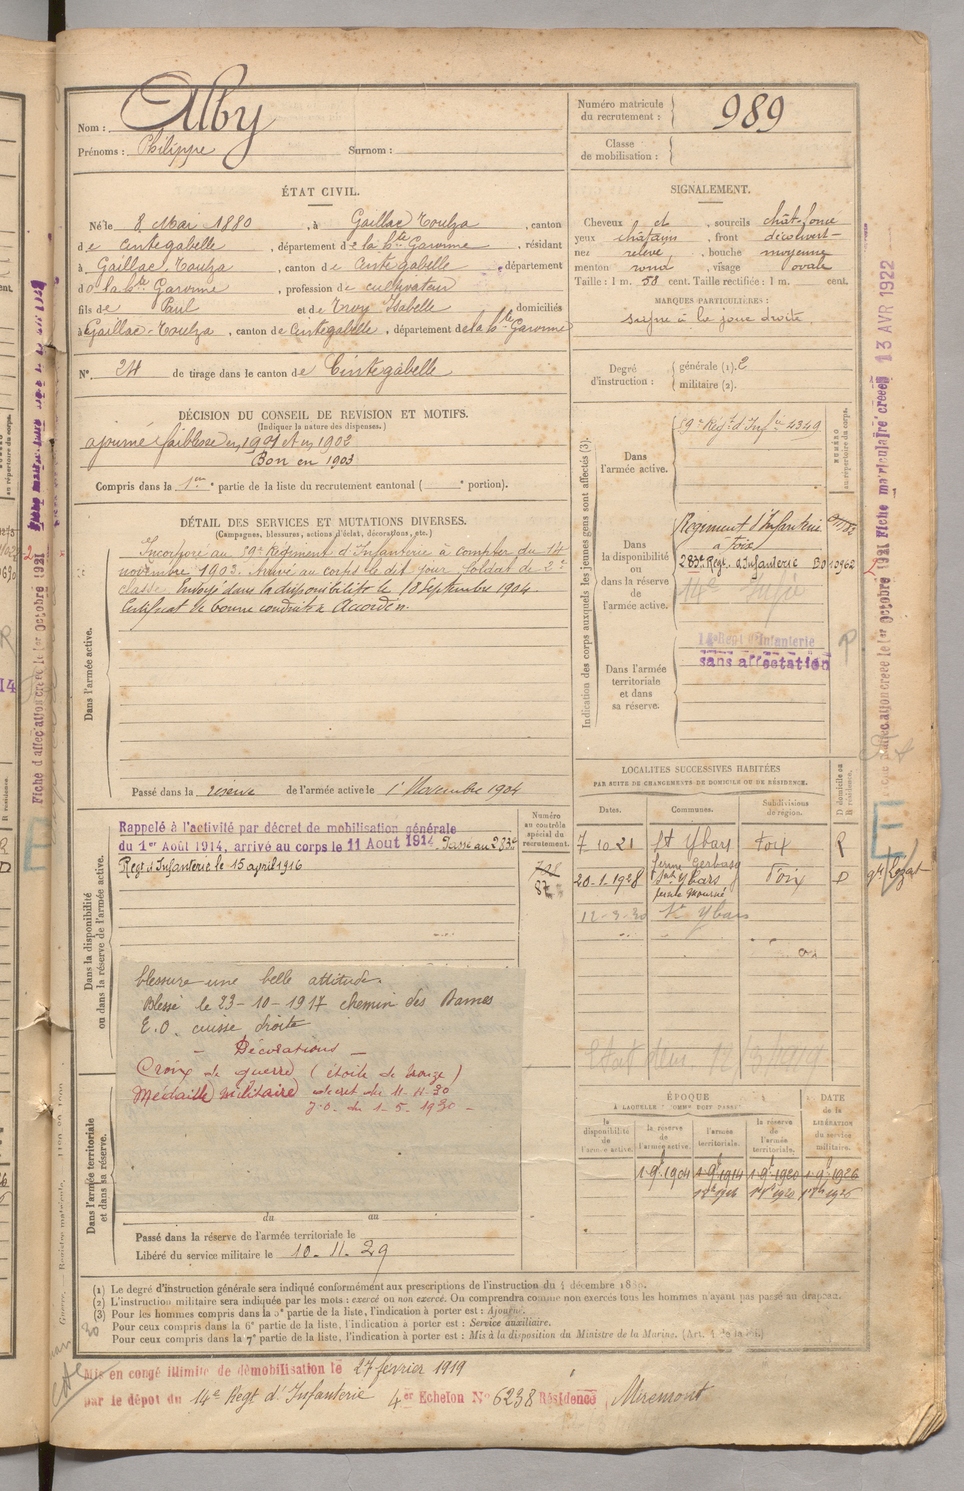 Nom : Alby
Prénoms : Philippe Surnom :
Numéro matricule du recrutement : 989
Classe de mobilisation :
ÉTAT CIVIL.
Né le 8 Mai 1880, à Gaillac Toulza, canton
de Cintegabelle, département de la hte Garonne, résidant
à Gaillac Toulza, canton de Cintegabelle, département
de la hte Garonne, profession de cultivateur
fils de Paul et de Isabelle domiciliés
à Gaillac-Toulza, canton de Cintegabelle, département de la hte Garonne
N° 24 de tirage dans le canton de Cintegabelle
SIGNALEMENT.
Cheveux ct, sourcils chât. foncé
yeux châtains, front découvert
nez relevé, bouche moyenne
menton rond, visage ovale
Taille : 1 m. 58 cent. Taille rectifiée : 1 m. cent.
MARQUES PARTICULIÈRES :
à la joue droite.
Degré d'instruction : générale (1). 2
militaire (2).
DÉCISION DU CONSEIL DE REVISION ET MOTIFS.
(Indiquer la nature des dispenses.)
ajourné faiblesse en 1901 et en 1902
Bon en 1903
Compris dans la 1ere partie de la liste du recrutement cantonal ( portion).
DÉTAIL DES SERVICES ET MUTATIONS DIVERSES.
(Campagnes, blessures, actions d'éclat, décorations, etc.)
Dans l'armée active.
Incorporé au 59e Régiment d'Infanterie à compter du 14
novembre 1903. Arrivé au corps le dit jour. Soldat de 2e
classe. Envoyé dans la disponibilité le 18 Septembre 1904.
Certificat de bonne conduite Accordé.
Passé dans la réserve de l'armée active le 1er Novembre 1904
Indication des corps auxquels les jeunes gens sont affectés (3).
NUMÉRO au répertoire du corps.
Dans l'armée active.
59e Régt d'Infie 4349
Dans la disponibilité ou dans la réserve de l'armée active.
Régiment d'Infanterie
à Foix
283e Régt d'Infanterie 10962
14e Infie
Dans l'armée territoriale et dans sa réserve.
Régt d'Infanterie
sans affectation
R
Fiche matriculaire créée 13 AVR 1922
Fiche d'affectation créée le 1er octobre 1921
LOCALITÉS SUCCESSIVES HABITÉES
PAR SUITE DE CHANGEMENTS DE DOMICILE OU DE RÉSIDENCE.
Dates. Communes. Subdivisions de région. D domicile ou R résidence.
7 10 21 St Ybars Foix R
20.1.1928 ferme Gerbasq St Ybars Foix D
12-3-30 St Ybars
Dans la disponibilité ou dans la réserve de l'armée active.
Numéro au contrôle spécial du recrutement.
Rappelé à l'activité par décret de mobilisation générale
du 1er Août 1914, arrivé au corps le 11 Aout 1914. Passé au 283e
Régt d'Infanterie le 15 april 1916
blessure une belle attitude.
Blessé le 23-10-1917 chemin des Dames
E.O. cuisse droite
- Décorations -
Croix de guerre (étoile de bronze)
Médaille militaire décret du 11.11.30
J.O. du 1-5.1930 -
Dans l'armée territoriale et dans sa réserve.
du au
Passé dans la réserve de l'armée territoriale le
Libéré du service militaire le 10.11.29
ÉPOQUE
À LAQUELLE L'HOMME DOIT PASSER
la disponibilité de l'armée active. la réserve de l'armée active. l'armée territoriale. la réserve de l'armée territoriale.
DATE de la LIBÉRATION du service militaire.
1-9bre 1904 1-9bre 1914 1-9bre 1920 1-9bre 1926
(1) Le degré d'instruction générale sera indiqué conformément aux prescriptions de l'instruction du 4 décembre
(2) L'instruction militaire sera indiquée par les mots : exercé ou non exercé. On comprendra comme non exercés tous les hommes n'ayant pas passé au drapeau.
(3) Pour les hommes compris dans la 5e partie de la liste, l'indication à porter est : Ajourné.
Pour ceux compris dans la 6e partie de la liste, l'indication à porter est : Service auxiliaire.
Pour ceux compris dans la 7e partie de la liste, l'indication à porter est : Mis à la disposition du Ministre de la Marine. (Art. 4 de la loi.)
Mis en congé illimité de démobilisation le 27 février 1919
par le dépot du 14e Regt d'Infanterie 4er Echelon N° 6238 Résidence Miremont